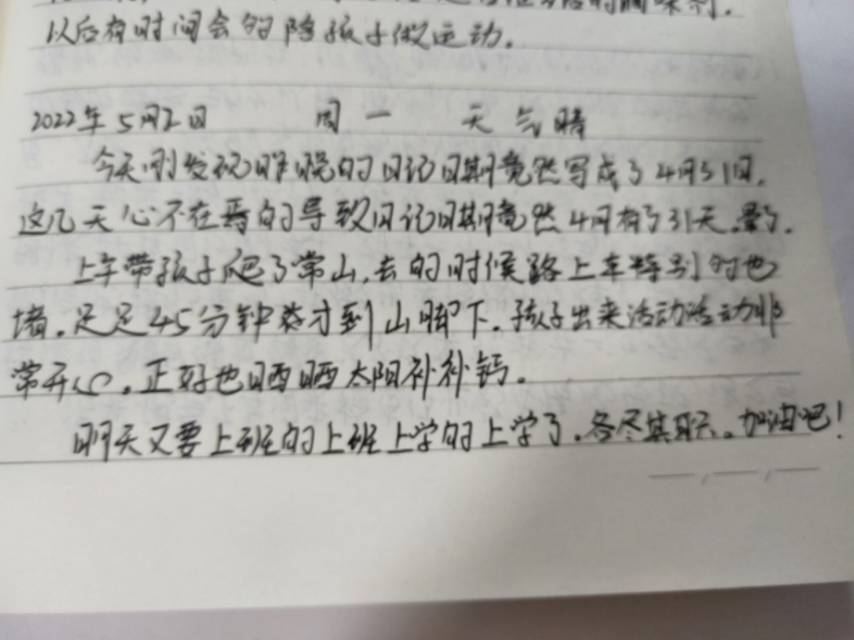 以后有时间会多陪孩子做运动。
2022年5月2日 周一 天气晴
今天刚发现昨晚的日记日期竟然写成了4月31日，
这几天心不在焉的导致日记日期竟然4月有了31天。晕了。
上午带孩子爬了常山，去的时候路上车特别多也
堵。足足45分钟才到山脚下。孩子出来活动活动非
常开心。正好也晒晒太阳补补钙。
明天又要上班的上班上学的上学了。各尽其职。加油吧！